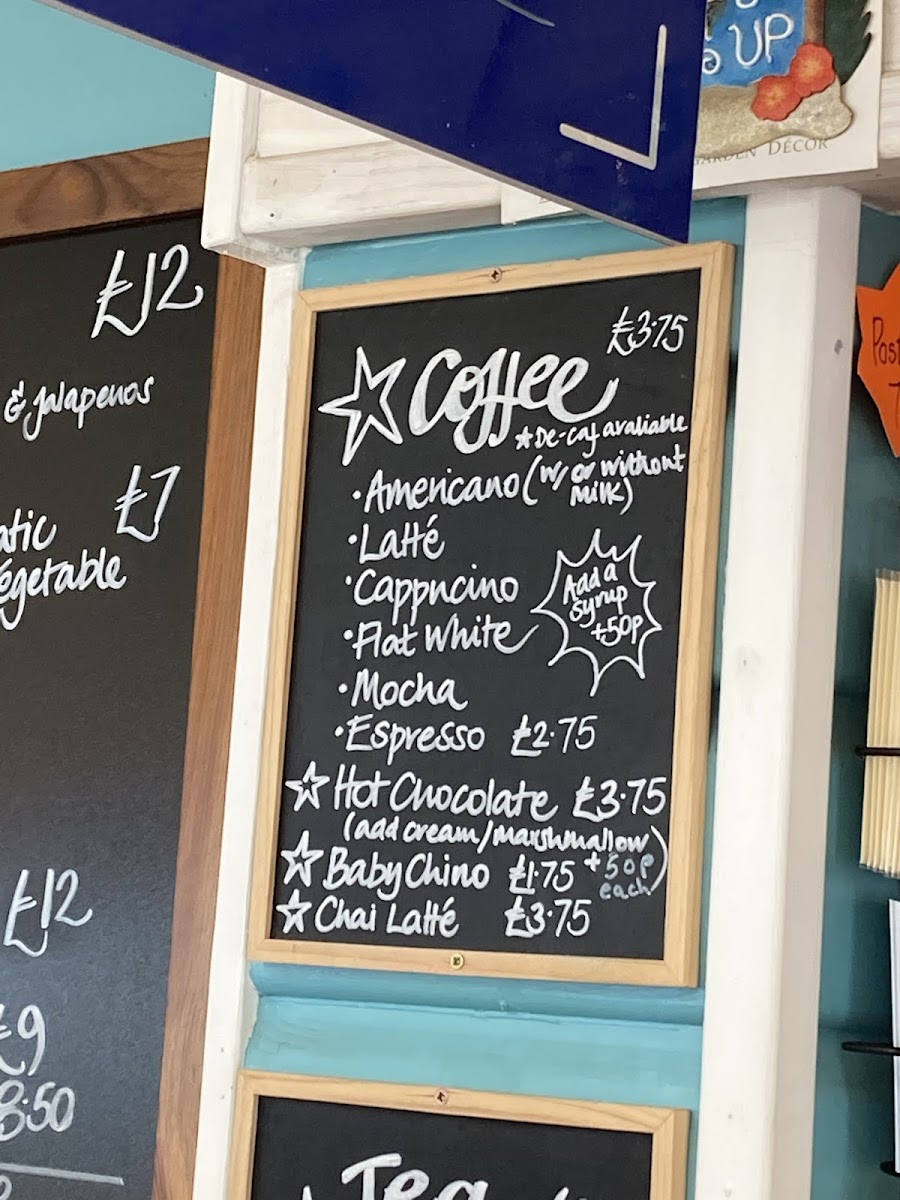 UP
GARDEN DÉCOR
£12
& Jalapenos
£7
vegetable
£12
£9
8.50
£3.75
Coffee
*De-caf avaliable
• Americano (w/ or without
Milk)
• Latté
• Cappucino
• Flat White
• Mocha
• Espresso £2.75
Add a
syrup
+50p
Hot Chocolate £3.75
(add cream/marshmallow)
+50p
each
Baby Chino £1.75
Chai Latté £3.75
Tea